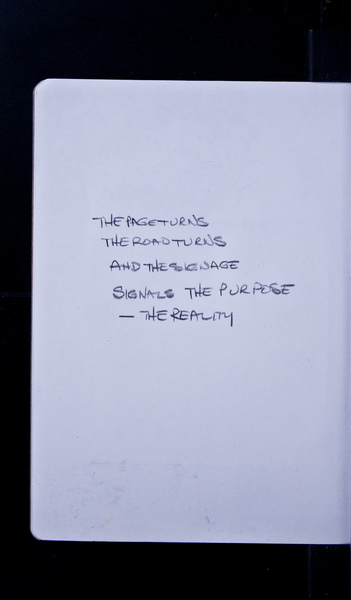 THE PAGE TURNS
THE ROAD TURNS
AND THE SIGNAGE
SIGNALS THE PURPOSE
— THE REALITY